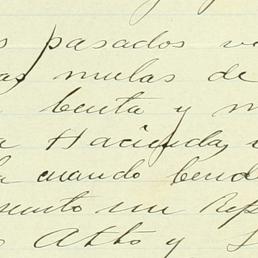 s pasados v
as mulas de
benta y m
a Hacienda
la cuando bend
cuento un rep
Atto y